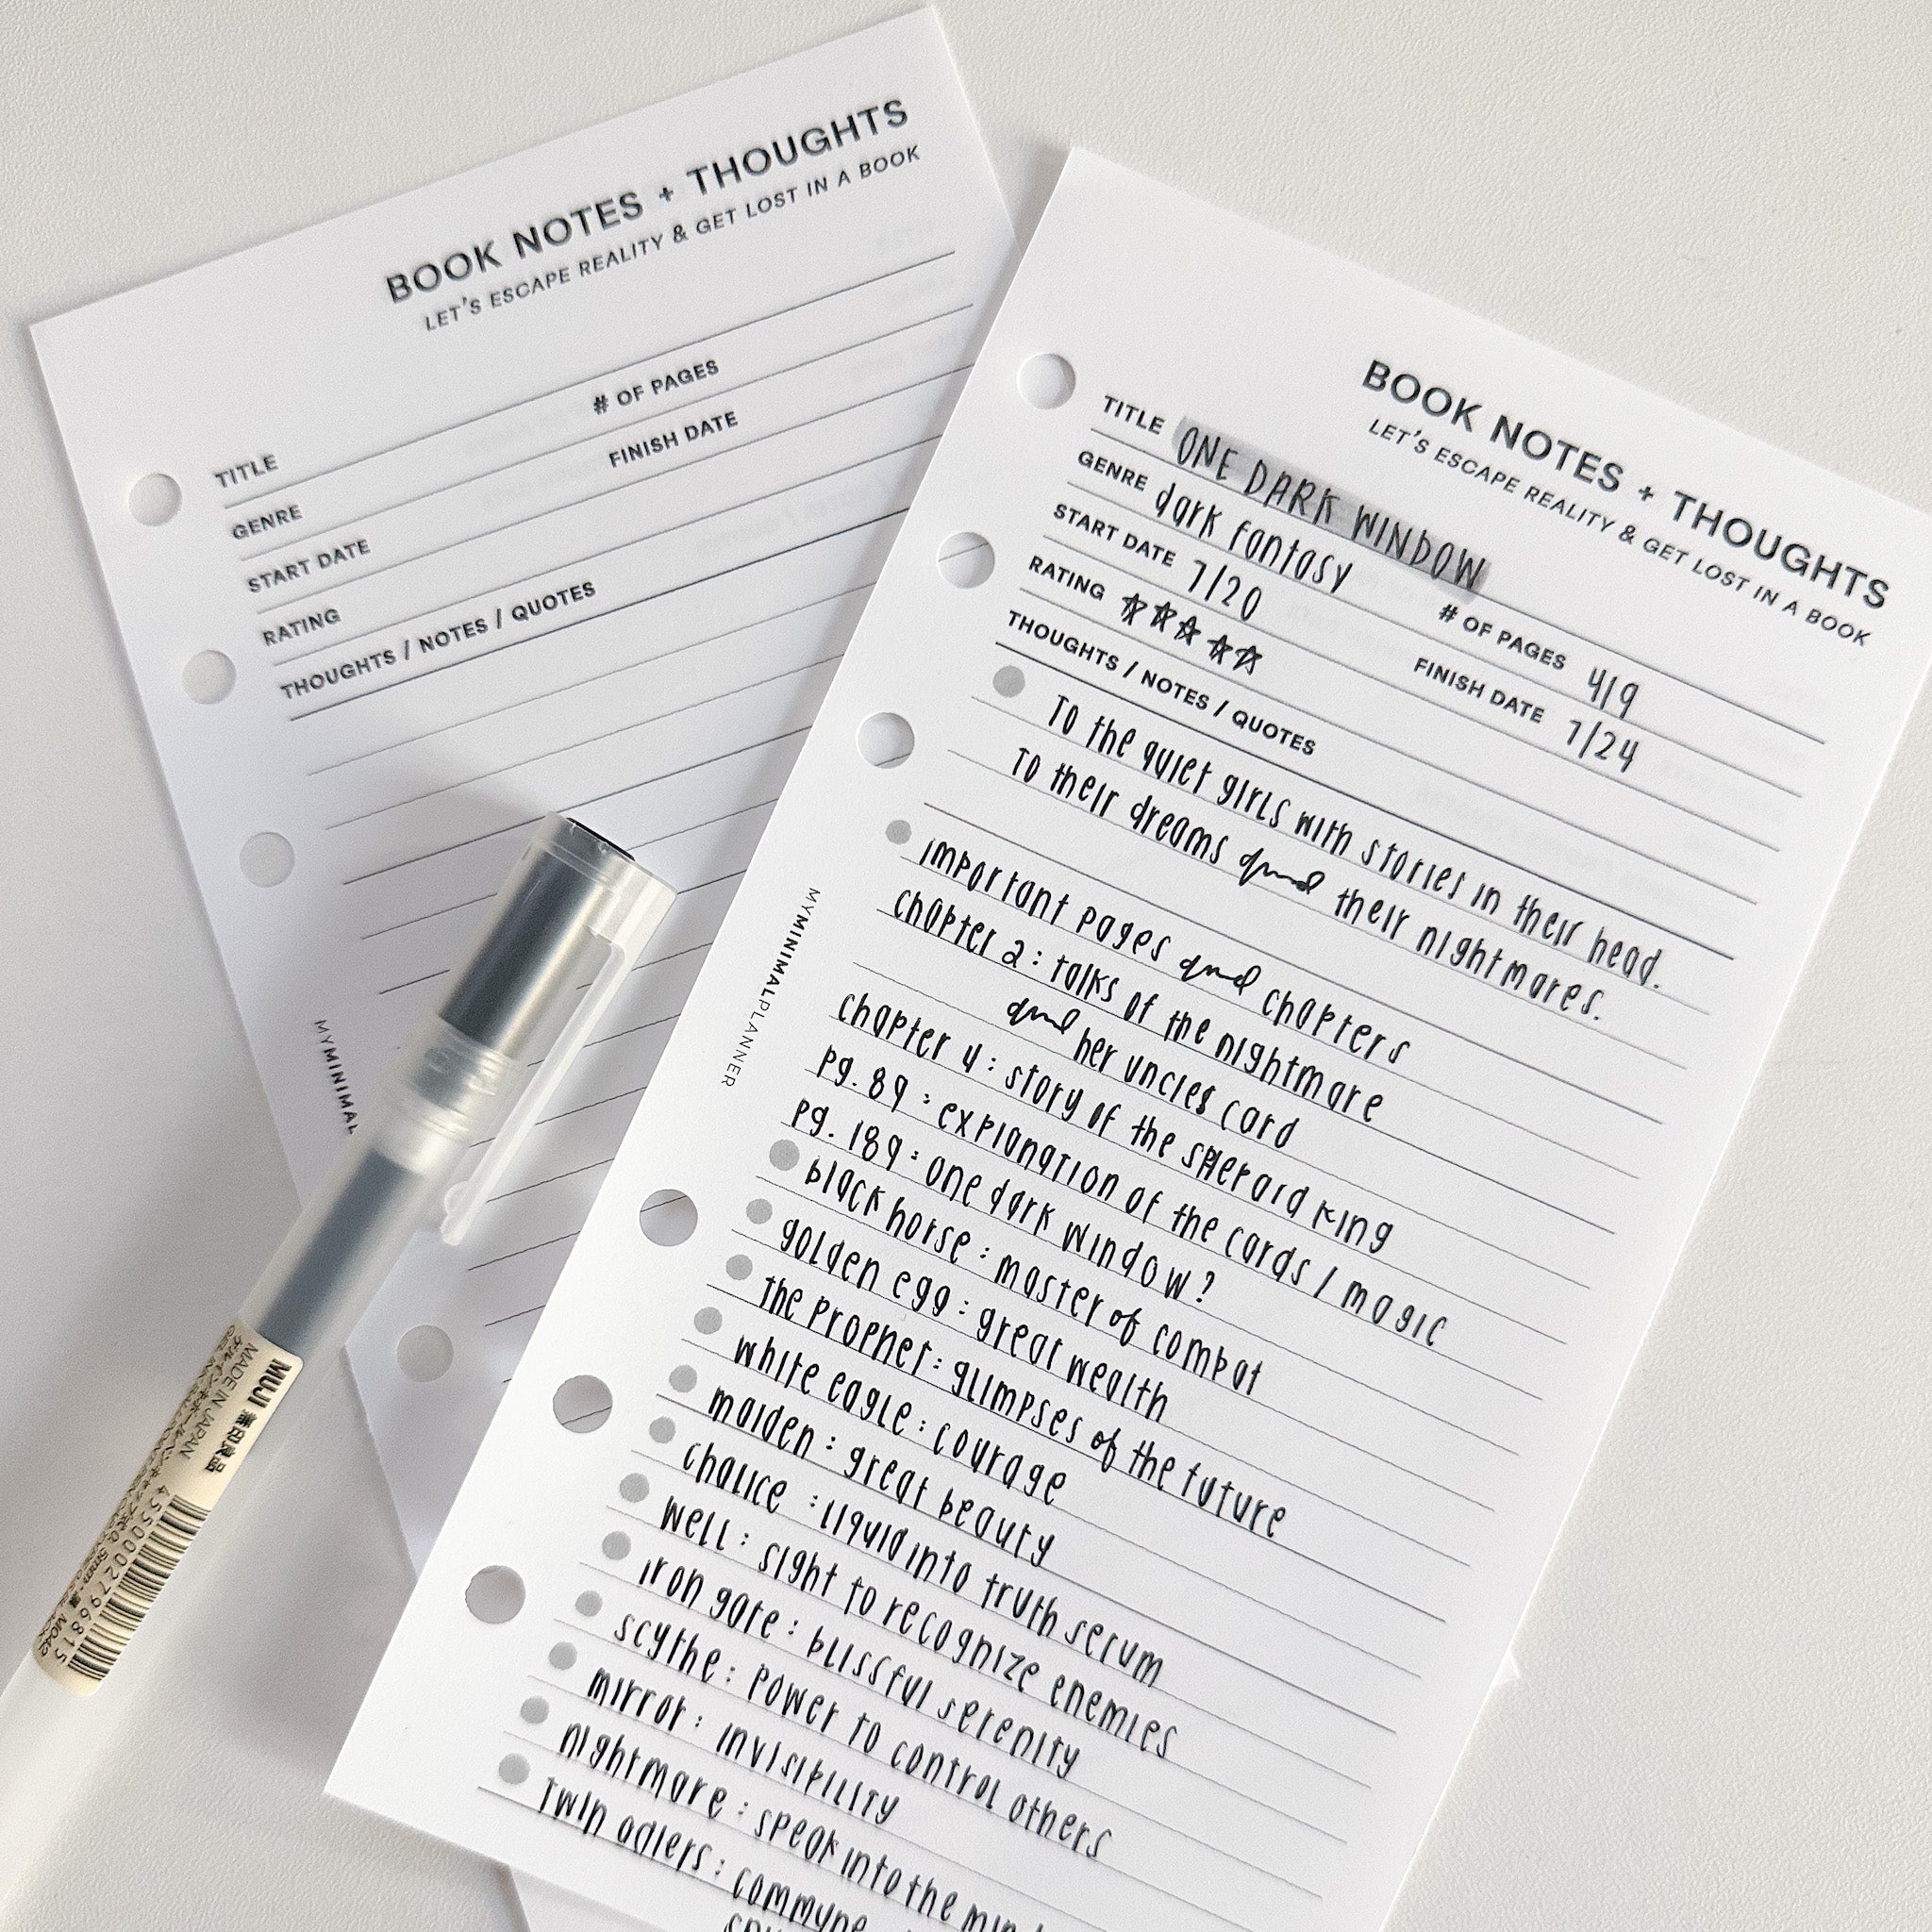 BOOK NOTES + THOUGHTS
LET'S ESCAPE REALITY & GET LOST IN A BOOK
TITLE
GENRE # OF PAGES
START DATE FINISH DATE
RATING
THOUGHTS / NOTES / QUOTES
MYMINIMAL
BOOK NOTES + THOUGHTS
LET'S ESCAPE REALITY & GET LOST IN A BOOK
TITLE ONE DARK WINDOW
GENRE dark fantasy # OF PAGES 419
START DATE 7/20 FINISH DATE 7/24
RATING ☆☆☆☆☆
THOUGHTS / NOTES / QUOTES
To the quiet girls with stories in their head.
To their dreams and their nightmares.
important pages and chapters
chapter 2: talks of the nightmare
and her uncles card
chapter 4: story of the sheperd king
pg. 89: explanation of the cards / magic
pg. 189: one dark window?
black horse: master of combat
golden egg: great wealth
the prophet: glimpses of the future
white eagle: courage
maiden: great beauty
chalice: liquid into truth serum
well: sight to recognize enemies
iron gate: blissful serenity
scythe: power to control others
mirror: invisibility
nightmare: speak into the
twin aders: commune
MYMINIMALPLANNER
MUJI 無印良品
MADE IN JAPAN
4550002796815